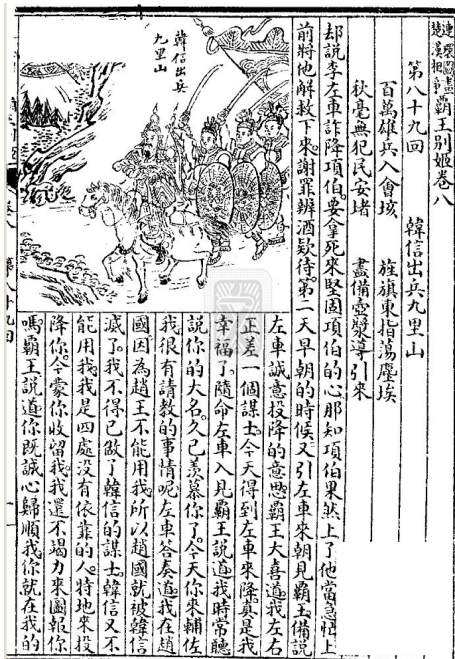 連環圖畫
楚漢相爭
霸王別姬卷八
第八十九回　韓信出兵九里山
百萬雄兵入會垓　旌旗東指蕩塵埃
秋毫無犯民安堵　盡備壺漿導引來
却說李左車詐降項伯要拿死來堅固項伯的心那知項伯果然上了他當急忙上
前將他解救下來謝罪辦酒欵待第二天早朝的時候又引左車來朝見霸王備說
左車誠意投降的意思霸王大喜道我左右
正差一個謀士今天得到左車來降真是我
幸福了隨命左車入見霸王說道我時常聽
說你的大名久已羨慕你了今天你來輔佐
我很有請教的事情呢左車答奏道我在趙
國因為趙王不能用我所以趙國就被韓信
滅了我不得已做了韓信的謀士韓信又不
能用我我是四處沒有依靠的人特地來投
降你今蒙你收留我我還不竭力來圖報你
嗎霸王說道你既誠心歸順我你就在我的
韓信出兵
九里山
卷八　第八十九回
一